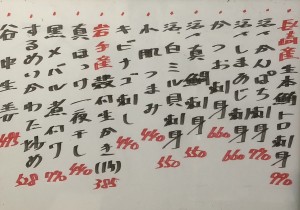 長崎産生本鮪トロ刺身 990
活〆かんぱち刺身 770
活〆あじ刺身 660
かつお刺身 660
活〆真鯛刺身 550
活〆白ミル貝刺身 550
小肌つまみ 440
キビナゴ刺し 440
岩手産殻付生かき(1ヶ) 385
一夜干し 440
黒メバル煮付け 770
するめいかわた炒め 528
谷中生姜 495